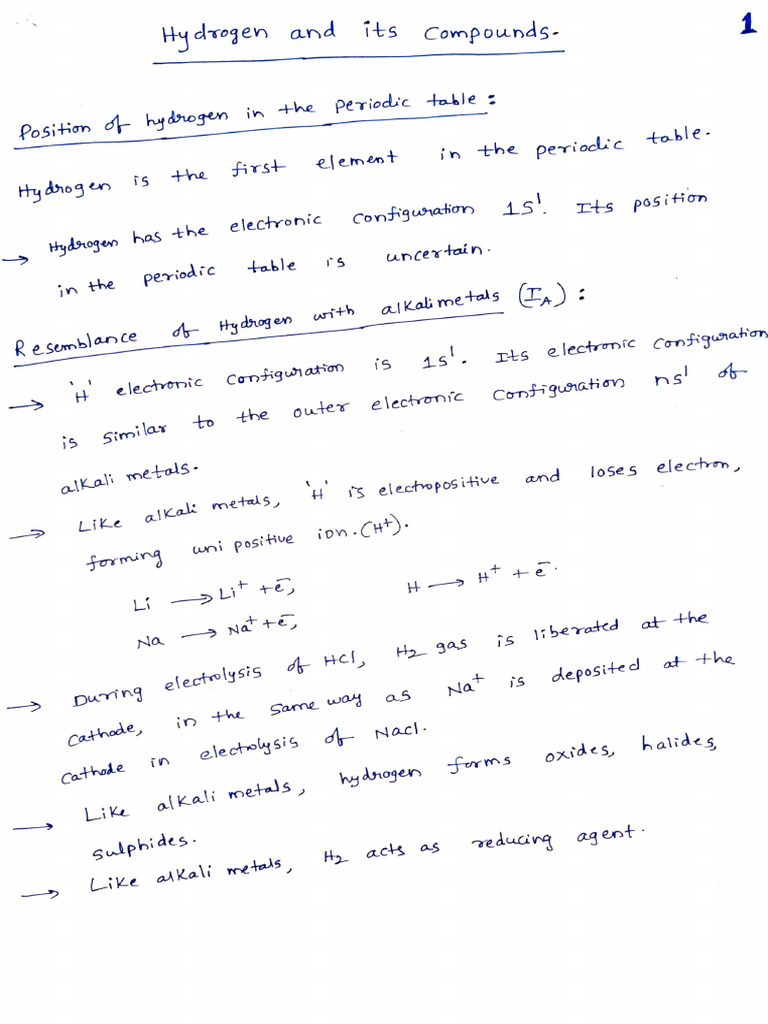 Hydrogen and its Compounds.
1
Position of hydrogen in the periodic table:
Hydrogen is the first element in the periodic table.
→ Hydrogen has the electronic configuration 1S¹. Its position
in the periodic table is uncertain.
Resemblance of Hydrogen with alkali metals (I_A):
→ 'H' electronic configuration is 1s¹. Its electronic configuration
is similar to the outer electronic configuration ns¹ of
alkali metals.
→ Like alkali metals, 'H' is electropositive and loses electron,
forming uni positive ion.(H⁺).
Li → Li⁺ + e̅, H → H⁺ + e̅.
Na → Na⁺ + e̅,
→ During electrolysis of HCl, H₂ gas is liberated at the
cathode, in the same way as Na⁺ is deposited at the
cathode in electrolysis of Nacl.
→ Like alkali metals, hydrogen forms oxides, halides,
sulphides.
→ Like alkali metals, H₂ acts as reducing agent.